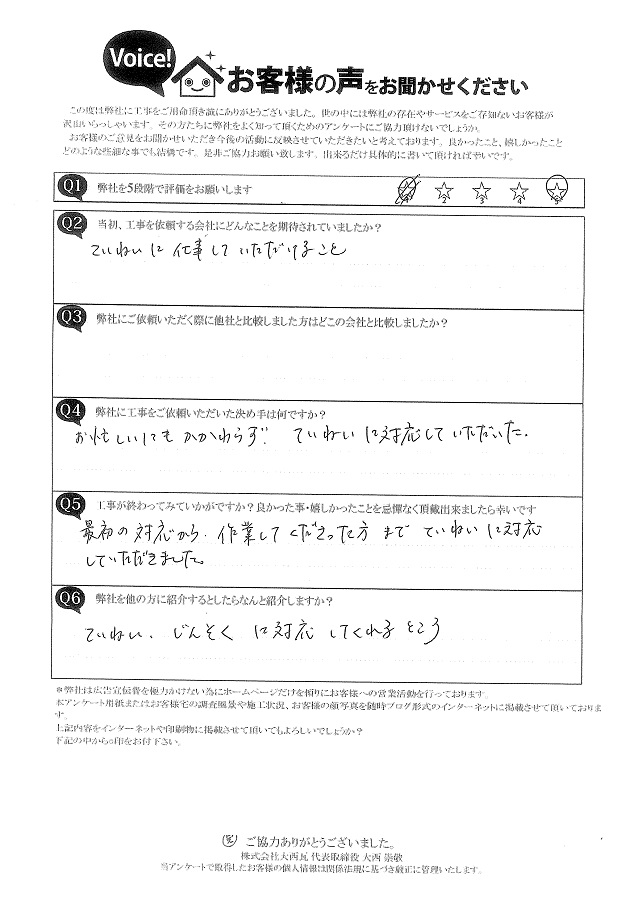 Voice! お客様の声をお聞かせください
この度は弊社に工事をご用命頂き誠にありがとうございました。世の中には弊社の存在やサービスをご存知ないお客様が
沢山いらっしゃいます。その方たちに弊社をよく知って頂くためのアンケートにご協力頂けないでしょうか。
お客様のご意見をお聞かせいただき今後の活動に反映させていただきたいと考えております。良かったこと、嬉しかったこと
どのような些細な事でも結構です。是非ご協力お願い致します。出来るだけ具体的に書いて頂ければ幸いです。
Q1 弊社を5段階で評価をお願いします 1 2 3 4 5
Q2 当初、工事を依頼する会社にどんなことを期待されていましたか?
ていねいに仕事していただけること
Q3 弊社にご依頼いただく際に他社と比較しました方はどこの会社と比較しましたか?
Q4 弊社に工事をご依頼いただいた決め手は何ですか?
お忙しいにもかかわらず ていねいに対応していただいた.
Q5 工事が終わってみていかがですか?良かった事・嬉しかったことを忌憚なく頂戴出来ましたら幸いです
最初の対応から、作業してくださった方までていねいに対応
していただきました。
Q6 弊社を他の方に紹介するとしたらなんと紹介しますか?
ていねい、じんそくに対応してくれるところ
*弊社は広告宣伝費を極力かけない為にホームページだけを頼りにお客様への営業活動を行っております。
本アンケート用紙またはお客様宅の調査風景や施工状況、お客様の顔写真を随時ブログ形式のインターネットに掲載させて頂いておりま
す。
上記内容をインターネットや印刷物に掲載させて頂いてもよろしいでしょうか?
下記の中から○印をお付下さい。
ご協力ありがとうございました。
株式会社大西瓦 代表取締役 大西 崇敬
当アンケートで取得したお客様の個人情報は関係法規に基づき厳正に管理いたします。